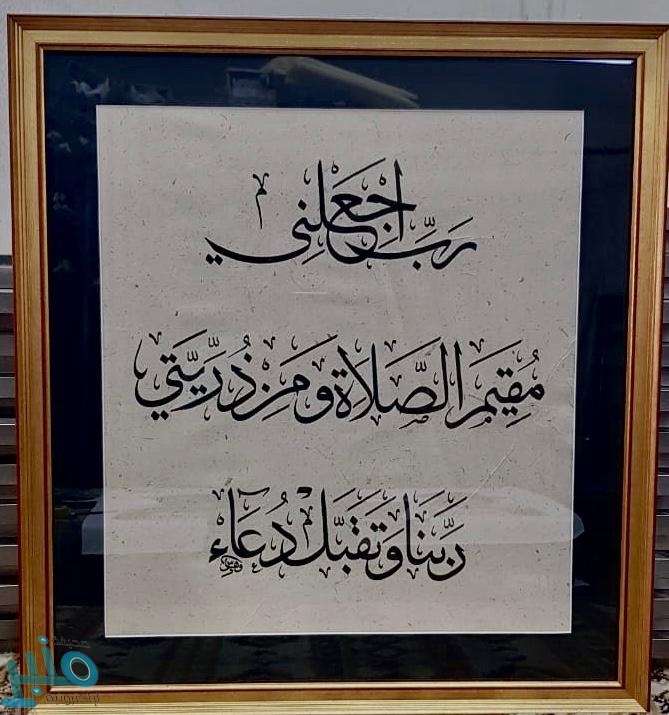 رَبِّ اجْعَلْنِي
مُقِيمَ الصَّلَاةِ وَمِنْ ذُرِّيَّتِي
رَبَّنَا وَتَقَبَّلْ دُعَآءِ
منبر